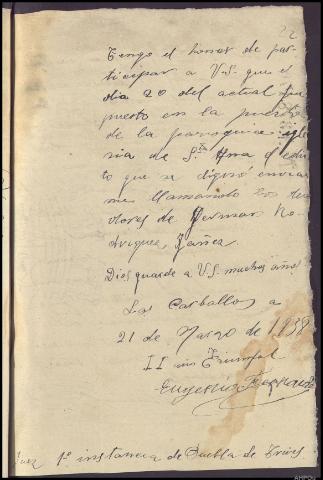 Tengo el honor de par-
ticipar a V.S. que el
dia 20 del actual fue
puesto en la puerta
de la parroquia igle
sia de Sta Ana el edic
to que se dignó enviar
me llamando los deu
dores de German Ro-
driguez Yañez
Dios guarde a V.S. muchos años
Las Carballos a
21 de Marzo de 1938
II año Triunfal
Eugenio
Juez 1ª instancia de Puebla de Trives
AHPOU